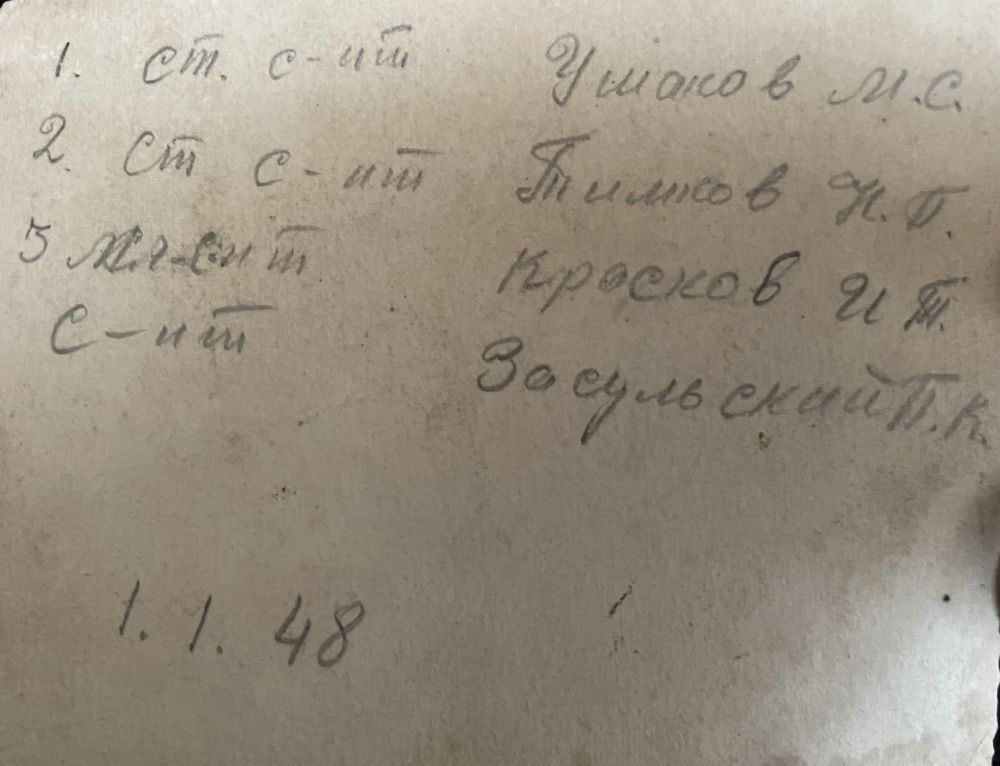 1. ст. с-нт Ушаков М.С.
2. Ст с-нт Тимков Н.П.
3 мл-с-нт Красков И Т.
С-нт Засульский П.К.
1. 1. 48